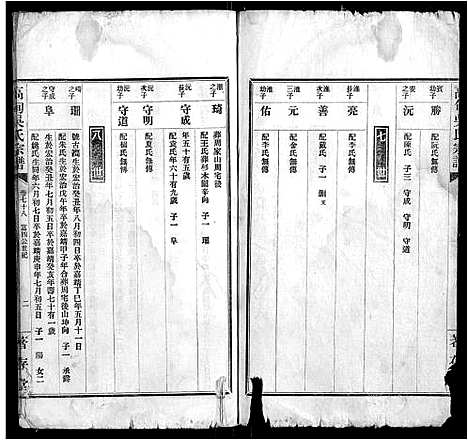 資幼子
勝
配阮氏無傳
沅子
武
配陳氏 子三 守成 守明 守道
七
亮
配李氏無傳
善
配戴氏 子一
元
配金氏無傳
佑
配李氏無傳
琦
葬周家山周宅後
配王氏葬杉木園辛向 子一 珊
沅長子
守成
年五十有一歲
配袁氏年六十有九歲 子一 阜
沅次子
守明
配夏氏無傳
沅幼子
守道
配楊氏無傳
八
琦之子
珊
生於宏治癸丑年八月初四日卒於嘉靖丁巳年五月十一日
配朱氏生於宏治戊午年卒於嘉靖甲子年合葬周宅後山坤向 子一 承
守成之子
阜
生於宏治癸丑年七月初五日卒於嘉靖癸亥年壽七十有一歲
配姚氏生同年六月初七日卒於嘉靖庚申年七月初五日 子一 陽 女二
高甸吳氏宗譜
卷七十八 富四公世紀
二
著存堂